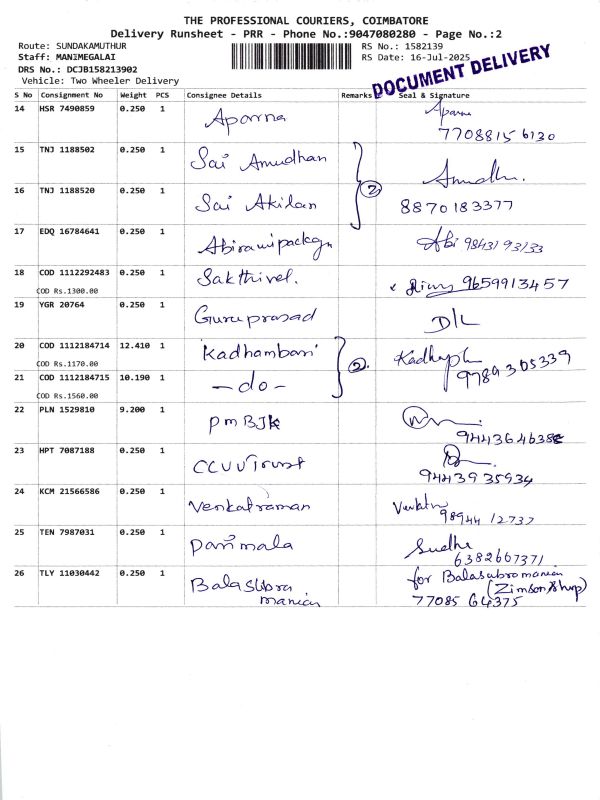 THE PROFESSIONAL COURIERS, COIMBATORE
Delivery Runsheet - PRR - Phone No.:9047080280 - Page No.:2
Route: SUNDAKAMUTHUR RS No.: 1582139
Staff: MANIMEGALAI RS Date: 16-Jul-2025
DRS No.: DCJB158213902
Vehicle: Two Wheeler Delivery
DOCUMENT DELIVERY
S No Consignment No Weight PCS Consignee Details Remarks Seal & Signature
14 HSR 7490859 0.250 1 Aparna Aparna
77088156130
15 TNJ 1188502 0.250 1 Sai Amudhan
16 TNJ 1188520 0.250 1 Sai Akilan 2 8870183377
17 EDQ 16784641 0.250 1 Abiramipackgn Abi 9843193133
18 COD 1112292483 0.250 1 Sakthivel. 9659913457
COD Rs.1300.00
19 YGR 20764 0.250 1 Guruprasad D/L
20 COD 1112184714 12.410 1 Kadhambari 2
COD Rs.1170.00
21 COD 1112184715 10.190 1 - do - 9789305339
COD Rs.1560.00
22 PLN 1529810 9.200 1 PMBJK
23 HPT 7087188 0.250 1 CCUVTrust
9443935934
24 KCM 21566586 0.250 1 Venkatraman
98944 12737
25 TEN 7987031 0.250 1 Parimala Sudha
6382667371
26 TLY 11030442 0.250 1 Balasubra
manian
for Balasubramanian
(Zimson Shop)
77085 64375